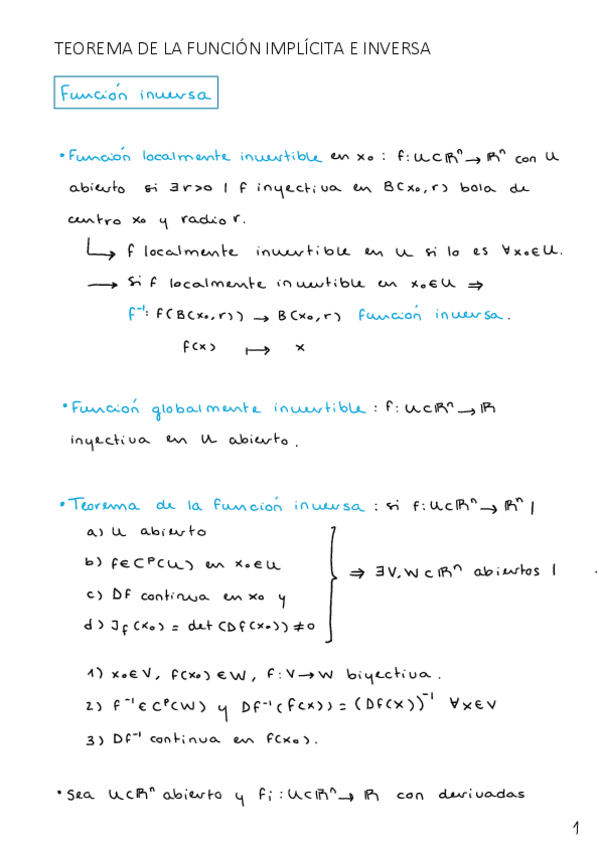 TEOREMA DE LA FUNCIÓN IMPLÍCITA E INVERSA
Función inversa
• Función localmente invertible en x₀ : f: U⊂ℝⁿ → ℝⁿ con U
abierto si ∃ r>0 | f inyectiva en B(x₀, r) bola de
centro x₀ y radio r.
↳ f localmente invertible en U si lo es ∀x₀∈U.
→ Si f localmente invertible en x₀∈U ⇒
f⁻¹: f(B(x₀, r)) → B(x₀, r) función inversa.
f(x) ↦ x
• Función globalmente invertible : f: U⊂ℝⁿ → ℝ
inyectiva en U abierto.
• Teorema de la función inversa : si f: U⊂ℝⁿ → ℝⁿ |
a) U abierto
b) f∈Cᵖ(U) en x₀∈U
c) Df continua en x₀ y
d) J_f(x₀) = det(Df(x₀)) ≠ 0
⇒ ∃V, W⊂ℝⁿ abiertos |
1) x₀∈V, f(x₀)∈W, f: V→W biyectiva.
2) f⁻¹∈Cᵖ(W) y Df⁻¹(f(x)) = (Df(x))⁻¹ ∀x∈V
3) Df⁻¹ continua en f(x₀).
• Sea U⊂ℝⁿ abierto y fᵢ : U⊂ℝⁿ → ℝ con derivadas
1